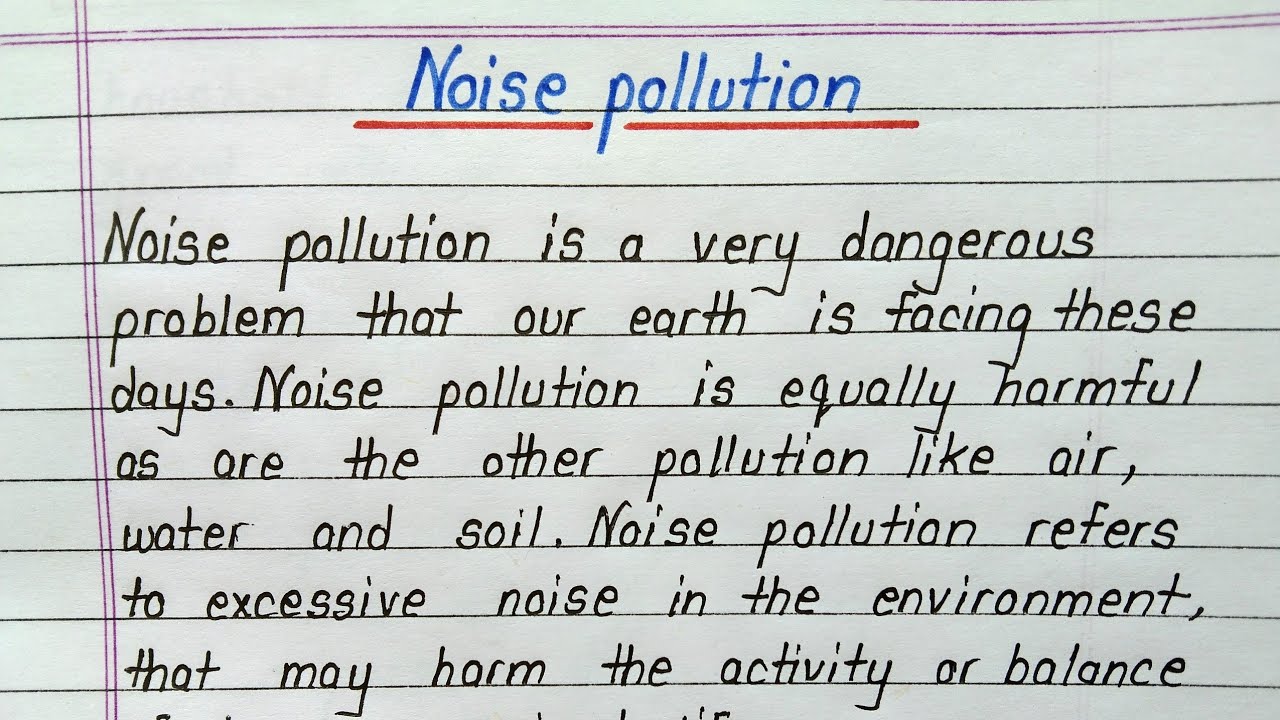 Noise pollution
Noise pollution is a very dangerous
problem that our earth is facing these
days. Noise pollution is equally harmful
as are the other pollution like air,
water and soil. Noise pollution refers
to excessive noise in the environment,
that may harm the activity or balance